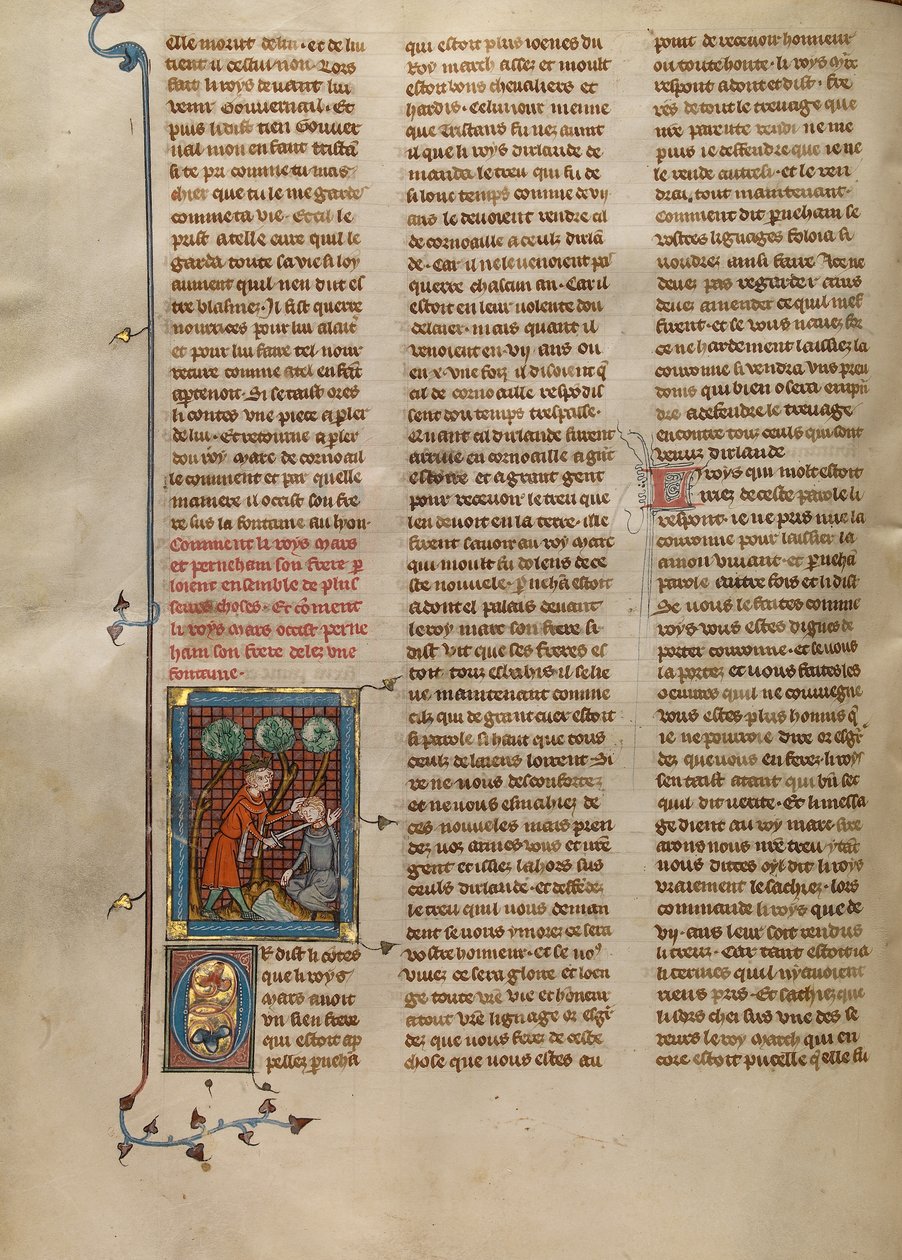 elle morut de lui · et de lui
tient il cestui non · Lors
fait li roys deuant lui
venir Gouuernail · Et
puis li dist tien Gouuer
nail mon enfant tristā
si te pri comme tu mas
chier que tu le me garde
comme ta vie · Et cil le
prist a telle cure quil le
garda toute sa vie si loy
aument quil nen dut es
tre blasmez · Il fist querre
nourrices pour lui alaitˀ
et pour lui faire tel nour
reture comme a tel enfāt
aptenoit · Si se taist ores
li contes vne piece a pler
de lui · Et retourne a pler
dou roy Marc de cornoail
le comment et par quelle
maniere il occist son fre
re sus la fontaine au lyon ·
Comment li roys Mars
et perneham son frere p
loient ensemble de plus
seurs choses · Et cōment
li roys Mars occist perne
ham son frere delez vne
fontaine ·
Or dist li cōtes
que li roys
Mars auoit
vn sien frere
qui estoit ap
pellez pˀneha
qui estoit plus ioenes du
Roy march assez et moult
estoit bons cheualiers et
hardis · Celui iour meime
que Tristans fu nez auint
il que li roys dirlande de
manda le treu qui fu de
si lonc temps comme de vij
ans le deuoient rendre cil
de cornoaille a ceulz dirlā
de · Car il ne le venoient pas
querre chascun an · Car il
estoit en leur volente dou
delaier · mais quant il
venoient en · vij · ans ou
en · x · vne foiz il disoient q̄
cil de cornoaille respōdis
sent dou temps trespasse ·
Quant cil dirlande furent
arriue en cornoaille a grāt
estoire et a grant gent
pour receuoir le treu que
len deuoit en la terre · ille
firent sauoir au roy marc
qui moult fu dolens de ce
ste nouuele · pˀnehā estoit
adont el palais deuant
le roy marc son frere si
dist vit que ses freres es
toit touz esbahis il se lie
ue maintenant comme
cilz qui de grant cuer estoit
si parole si haut que tous
ceulz de laiens loirent Si
re ne vous desconfortez
et ne vous esmaiiez de
ces nouueles mais pren
dez voz armes vous et vr̄e
gent et issiez la hors sus
ceulz dirlande · et deffēdez
le treu quil vous deman
dent se vous y morez ce sera
vostre honneur · et se vo9
viuez ce sera gloire et loen
ge toute vr̄e vie et hōneur
a tout vr̄e lignage or esgˀ
dez que vous ferez de ceste
chose que vous estes au
point de receuoir honneur
ou toute honte · li roys Mˀc
respont adont et dist · Fre
res de tout le treuage que
mr̄e parente rendi ne me
puis ie deffendre que ie ne
le rende autresi · et le ren
drai tout maintenant ·
Comment dit pˀneham se
vostres lignages foloia si
voudrez ainsi faire A ce ne
deuez pas regarder ains
deuez amender ce quil mef
firent · et se vous nauez for
ce ne hardement laissiez la
couronne si vendra vns preu
doms qui bien osera enpˀn
dre a defendre le treuage
encontre touz ceuls qui sont
venuz dirlande
Li roys qui molt estoit
iriez de ceste parole li
respont · ie ne pris mie la
couronne pour laissier la
a mon viuant · et pˀnehā
parole autre fois et li dist
Se vous le faites comme
roys vous estes dignes de
porter couronne · et se vous
la portez et vous faites les
oeuures quil ne conuiegne
vous estes plus honnis q̄
ie ne pourroie dire or esgˀ
dez que vous en ferez · li roys
sen taist atant qui bn̄ set
quil dit verite · Et li messa
ge dient au roy marc sire
arons nous nr̄e treu ytāt
nous dittes oyl dit li roys
vraiement le sachiez · lors
commande li roys que de
vij · ans leur soit rendus
li treuz · Car tant estoit ia
li termes quil ny auoient
riens pris · Et sachiez que
li dors chei sus vne des se
reurs le roy March qui en
core estoit pucelle q̄ elle fu